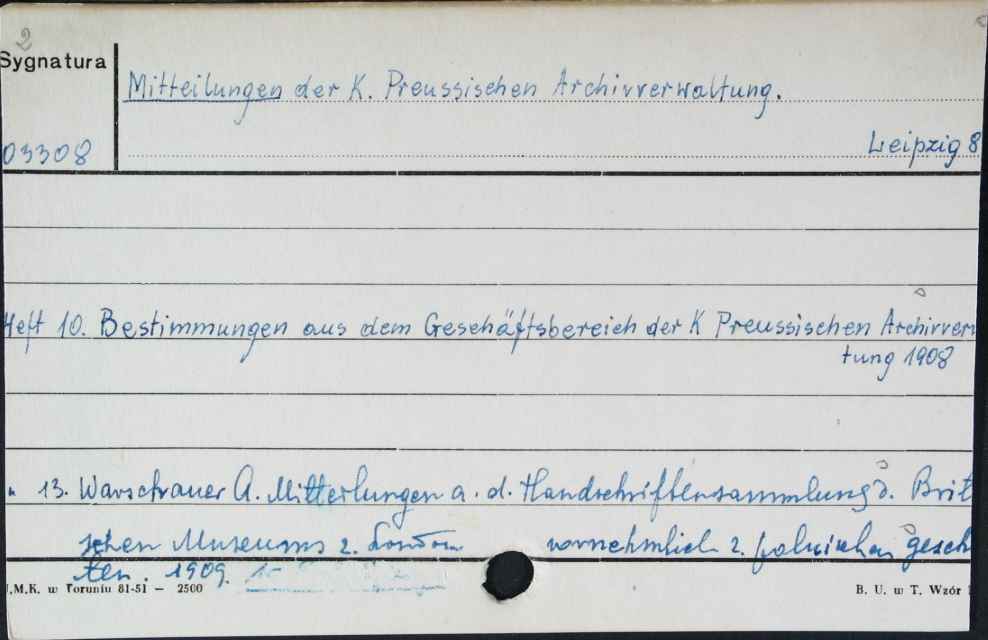 2
Sygnatura
Mitteilungen der K. Preussischen Archivverwaltung.
03308
Leipzig 8
Heft 10. Bestimmungen aus dem Geschäftsbereich der K Preussischen Archivver
tung 1908
" 13. Warschauer A. Mitteilungen a. d. Handschriftensammlung d. Brit
schen Museums z. London vornehmlich z. polnischen gesch
ten. 1909.
.M.K. w Toruniu 81-51 — 2500
B. U. w T. Wzór